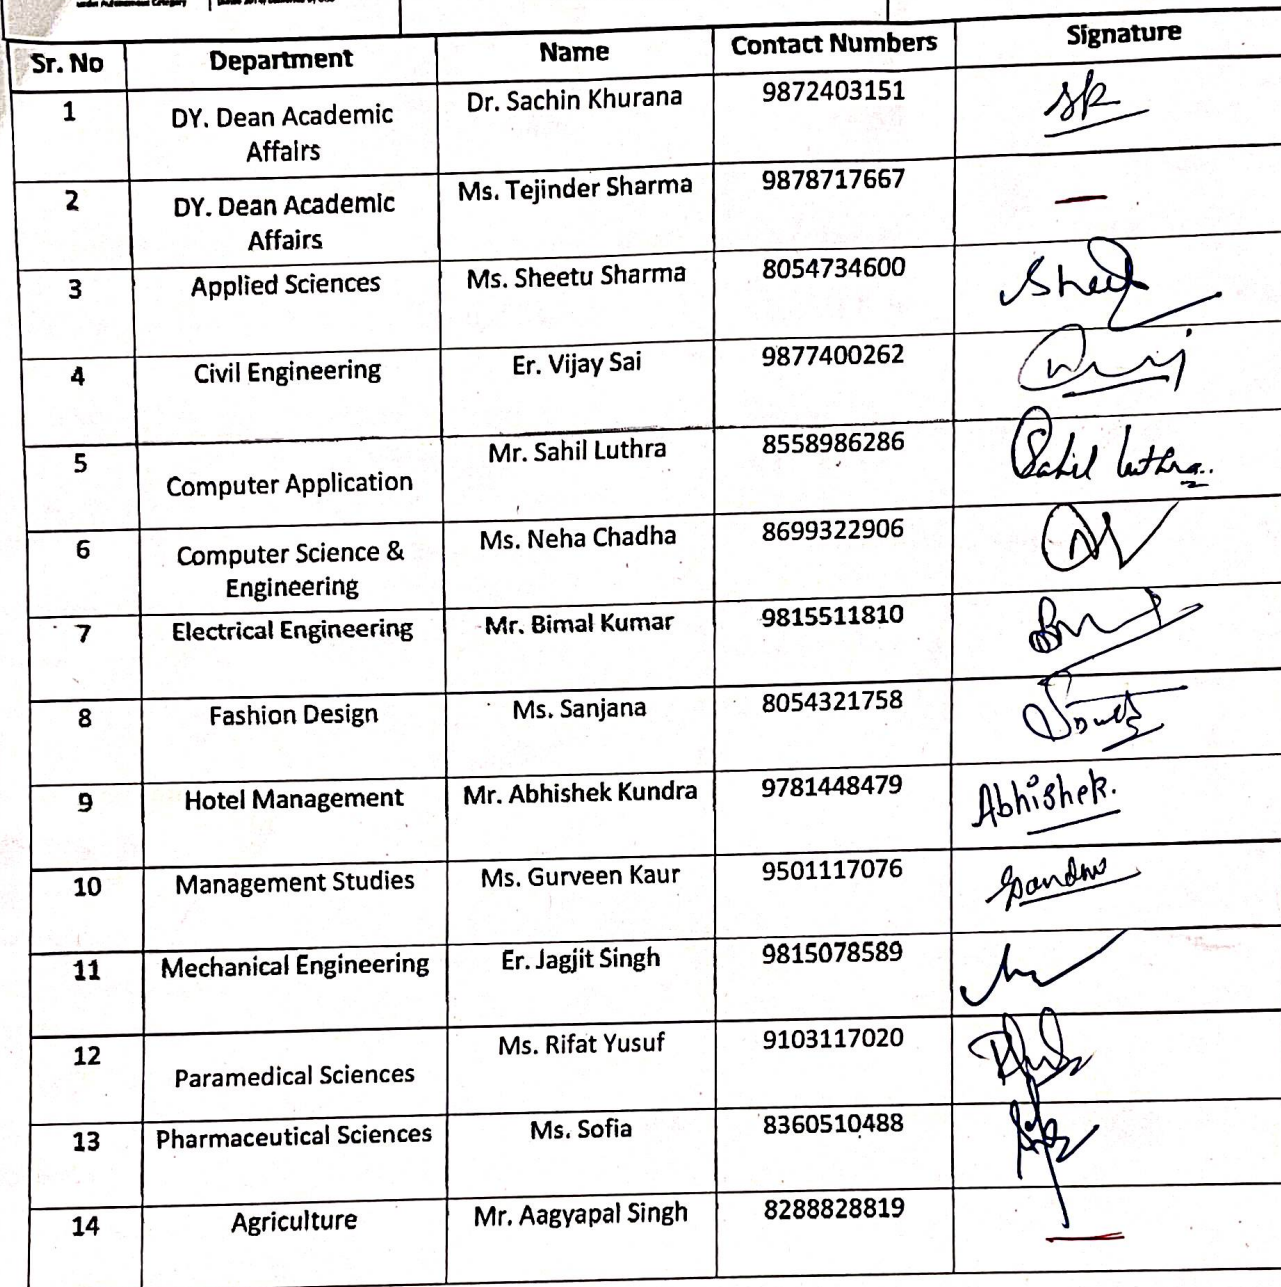 under Autonomous Category
Sr. No Department Name Contact Numbers Signature
1 DY. Dean Academic Affairs Dr. Sachin Khurana 9872403151 SK
2 DY. Dean Academic Affairs Ms. Tejinder Sharma 9878717667 —
3 Applied Sciences Ms. Sheetu Sharma 8054734600
4 Civil Engineering Er. Vijay Sai 9877400262
5 Computer Application Mr. Sahil Luthra 8558986286 Sahil Luthra
6 Computer Science & Engineering Ms. Neha Chadha 8699322906
7 Electrical Engineering Mr. Bimal Kumar 9815511810
8 Fashion Design Ms. Sanjana 8054321758
9 Hotel Management Mr. Abhishek Kundra 9781448479 Abhishek.
10 Management Studies Ms. Gurveen Kaur 9501117076
11 Mechanical Engineering Er. Jagjit Singh 9815078589
12 Paramedical Sciences Ms. Rifat Yusuf 9103117020
13 Pharmaceutical Sciences Ms. Sofia 8360510488
14 Agriculture Mr. Aagyapal Singh 8288828819 —